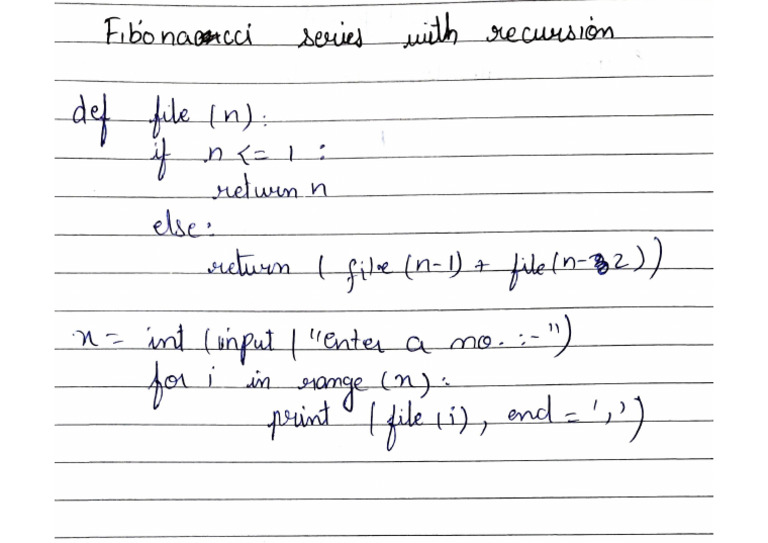 Fibonacci series with recursion
def file (n):
if n <= 1 :
return n
else:
return ( file (n-1) + file (n-2))
n = int (input ( "Enter a no. :- ")
for i in range (n):
print (file (i), end = ',')